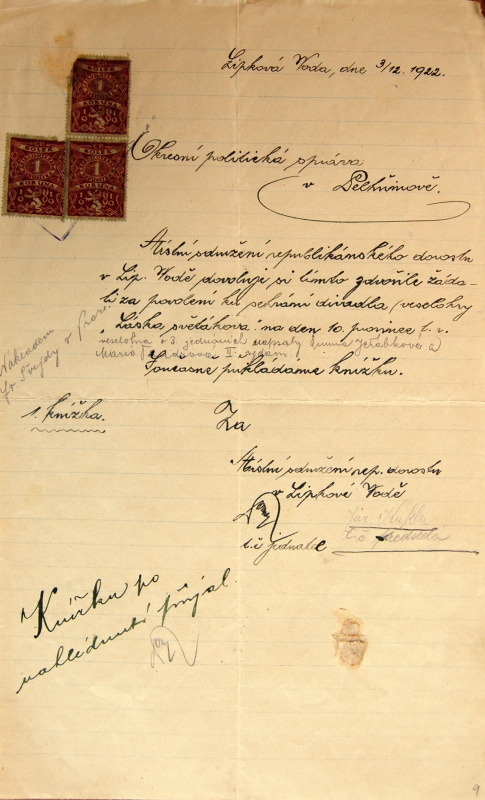 Lipková Voda, dne 3/12. 1922.
KOLEK
1
KORUNA
KOLEK
1
KORUNA
KOLEK
1
KORUNA
Okresní politická správa
v Pelhřimově.
Místní sdružení republikánského dorostu
v Lip. Vodě dovoluje si tímto zdvořile žáda-
ti za povolení ku sehrání divadla /veselohry
"Láska světákova" na den 10. prosince t. r.
veselohra o 3. jednáních napsaly Emma Jeřábková a
Marie II. vydání.
Nákladem
Fr. Švejdy v Praze.
Současně přikládáme knížku.
1. knížka.
Za
Místní sdružení rep. dorostu
v Lipkové Vodě
t.č. jednatel
t.č. předseda
Knížku po
nahlédnutí přijal.
9